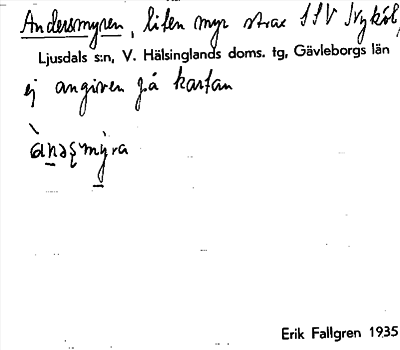 Andersmyren, liten myr strax SSV Nykôl,
Ljusdals s:n, V. Hälsinglands doms. tg, Gävleborgs län
ej angiven på kartan
Erik Fallgren 1935